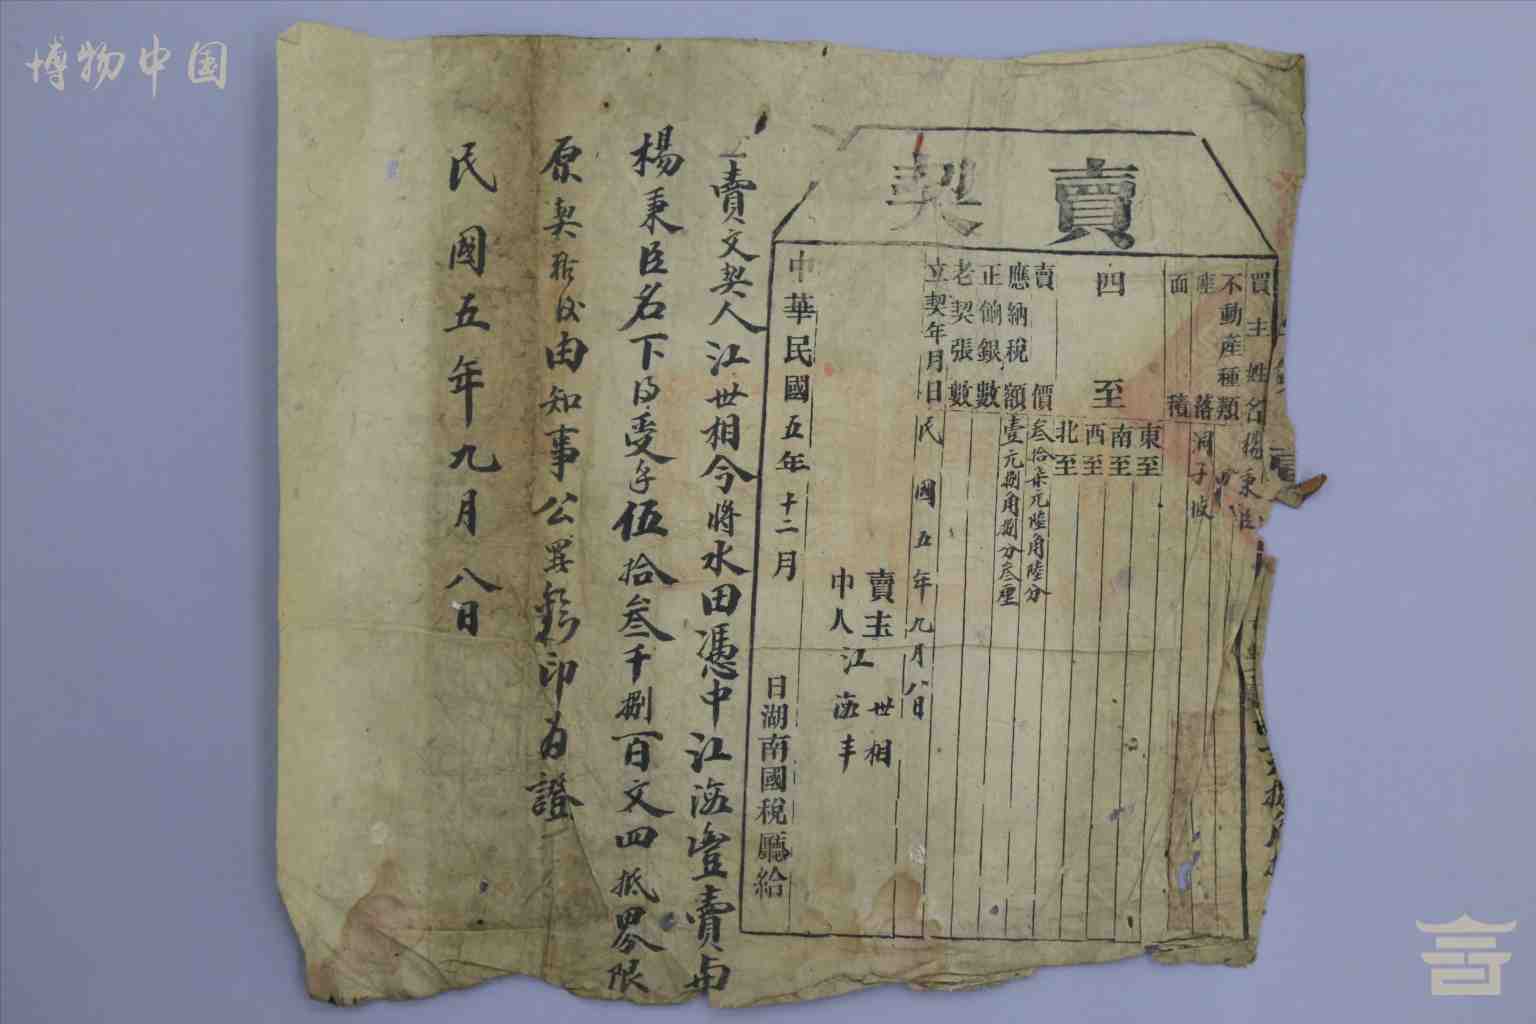 博物中国
賣契
買主姓名 楊秉臣
不動產種類 田
座落 洞子坡
面積
四至
東至
南至
西至
北至
賣價 叁拾柒元陸角陸分
應納稅額 壹元捌角捌分叁厘
正餉銀數
老契張數
立契年月日 民國五年九月八日
賣主 江世相
中人 江海丰
中華民國五年十二月 日湖南國稅廳給
立賣文契人江世相今將水田憑中江海豐賣與
楊秉臣名下得受錢伍拾叁千捌百文四抵界限
原契拾收由知事公署鈐印為證
民國五年九月八日